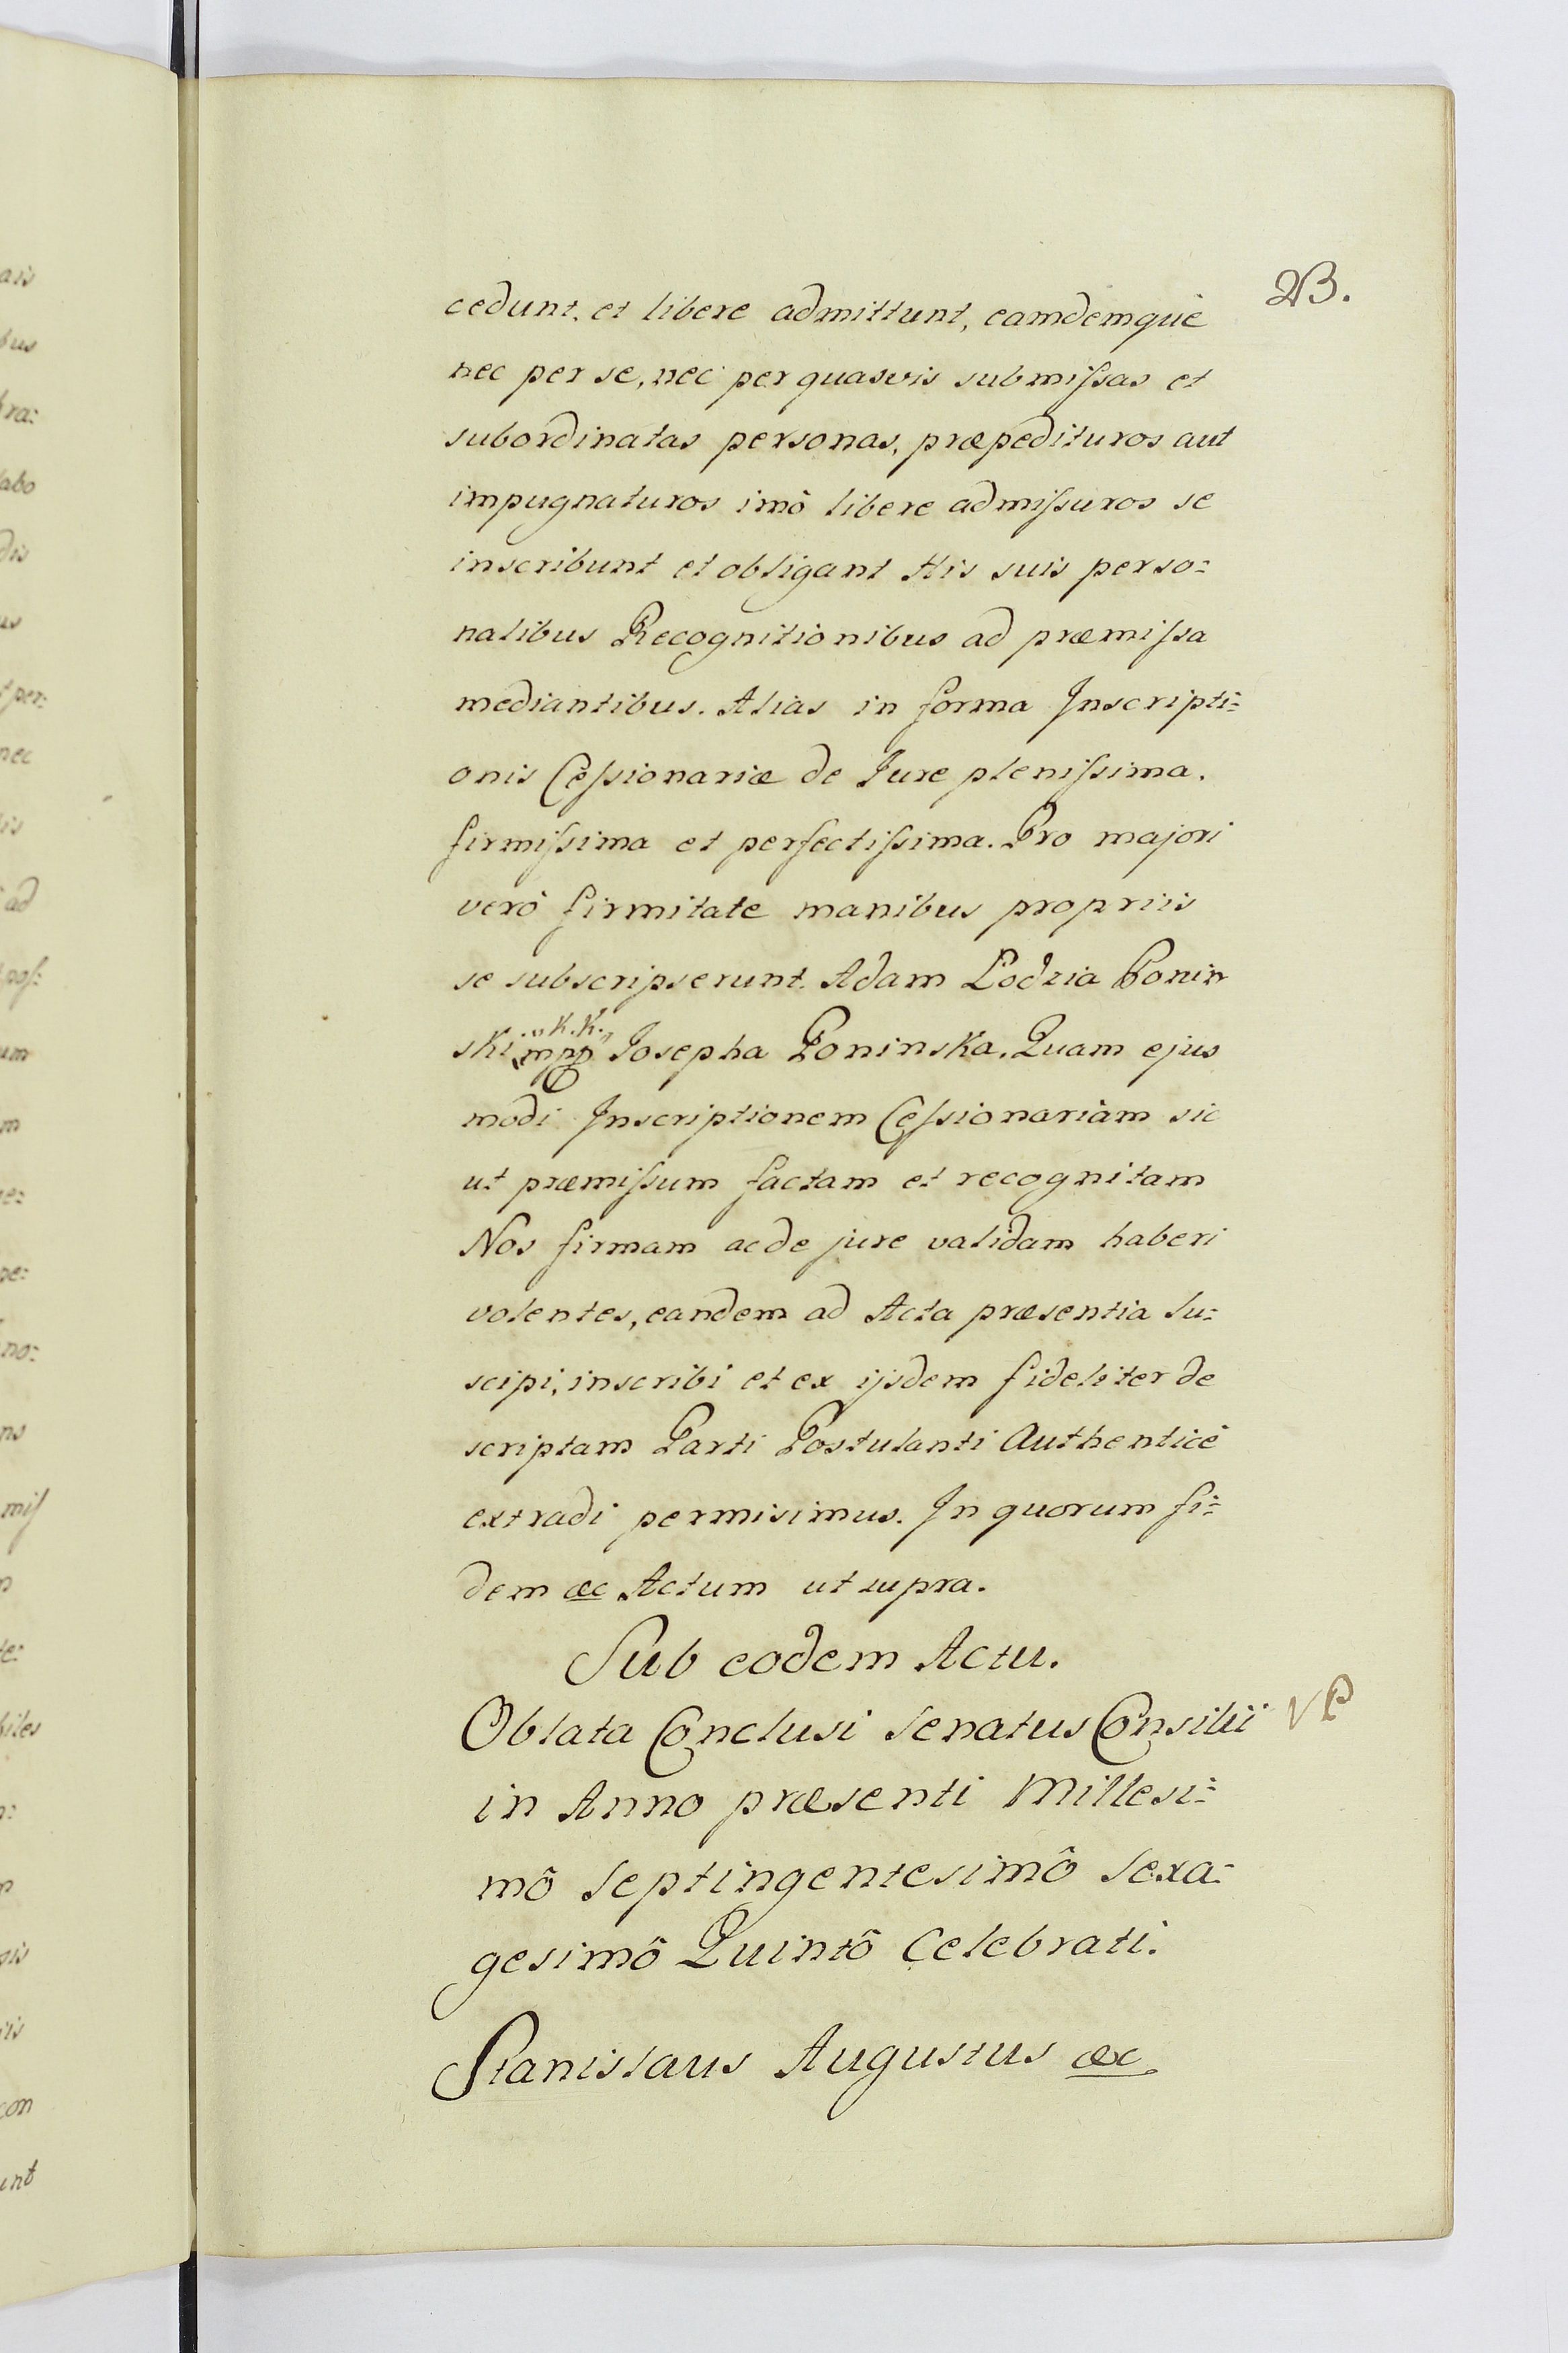 23.
cedunt, et libere admittunt, eamdemque
nec per se, nec per quasvis submiſsas et
subordinatas personas, præpedituros aut
impugnaturos imò libere admiſsuros se
inscribunt et obligant His suis perso=
nalibus Recognitionibus ad præmiſsa
mediantibus. Alias in forma Inscripti=
onis Ceſsionariæ de Jure pleniſsima.
firmiſsima et perfectiſsima. Pro majori
verò firmitate manibus propriis
se subscripserunt. Adam Lodzia Ponin
ski "K.K." mpp Josepha Poninska. Quam ejus
modi Inscriptionem Ceſsionariam sic
ut præmiſsum factam et recognitam
Nos firmam ac de jure validam haberi
volentes, eandem ad Acta præsentia su=
scipi, inscribi et ex ijsdem fideliter de
scriptam Parti Postulanti Authenticè
extradi permisimus. In quorum fi=
dem &c Actum ut supra.
Sub eodem Actu.
Oblata Conclusi Senatus Consilii
in Anno præsenti Millesi=
mô Septingentesimô Sexa=
gesimô Quintô Celebrati.
Stanislaus Augustus &c.